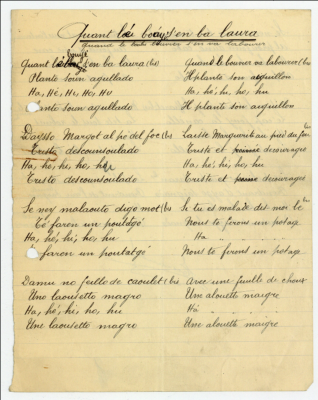 Quant lo boáys en ba laura
Quand le bouvier s'en va labourer
Quant lo bouyé s'en ba laura (bis) Quand le bouver va labourer (bis
Planto soun agullado Il planto son aiguillon
Ha, Hé, Hi, Ho, Hu Ha, hé, hi, ho, hu
Planto soun agullado Il planto son aiguillon
Margot al pé del foc (bis Laisse Marguerite au pied du feu (bis
Tristo descounsoulado Triste et decouragée
Ha, hé, hi, ho, hu Ha, hé, hi, ho, hu
Tristo descounsoulado Triste et decouragée
Se ney malaouto digo mot (bis Si tu es malade dis mot (bis
Té faren un poutatgé Nous te ferons un potage
Ha, hé, hi, ho, hu Ha
é faren un poutatgé Nous te ferons un potage
Damu no feillo de caoulet (bis Avec une feuille de choux
Uno laousetto magro Une alouette maigre
Ha, hé, hi, ho, hu Ha
Uno laousetto magro Une alouette maigre